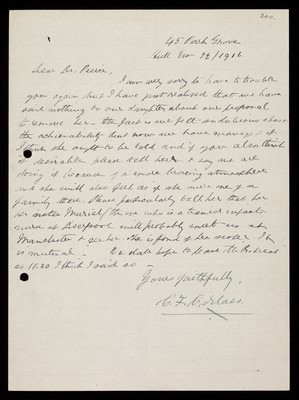 200.
45 Park Grove
Hull Nov 22/1916
Dear Dr. Pierce,
I am very sorry to have to trouble
you again but I have just realised that we have
said nothing to our daughter about our proposal
to remove her. The fact is we felt so dubious about
the achievability but now we have managed it
I think she ought to be told and if you also think
it desirable please tell her & say we are
doing it because of a more bracing atmosphere
and she will also feel as if she were one of a
family there. Please particularly tell her that her
sister Muriel (the one who is a trained infants
nurse at Liverpool will probably meet us at
Manchester & see her. She is fond of her sister. It
is mutual. We shall hope to leave the Retreat
at 11.20 I think I said so
Yours faithfully,
C. F. C.